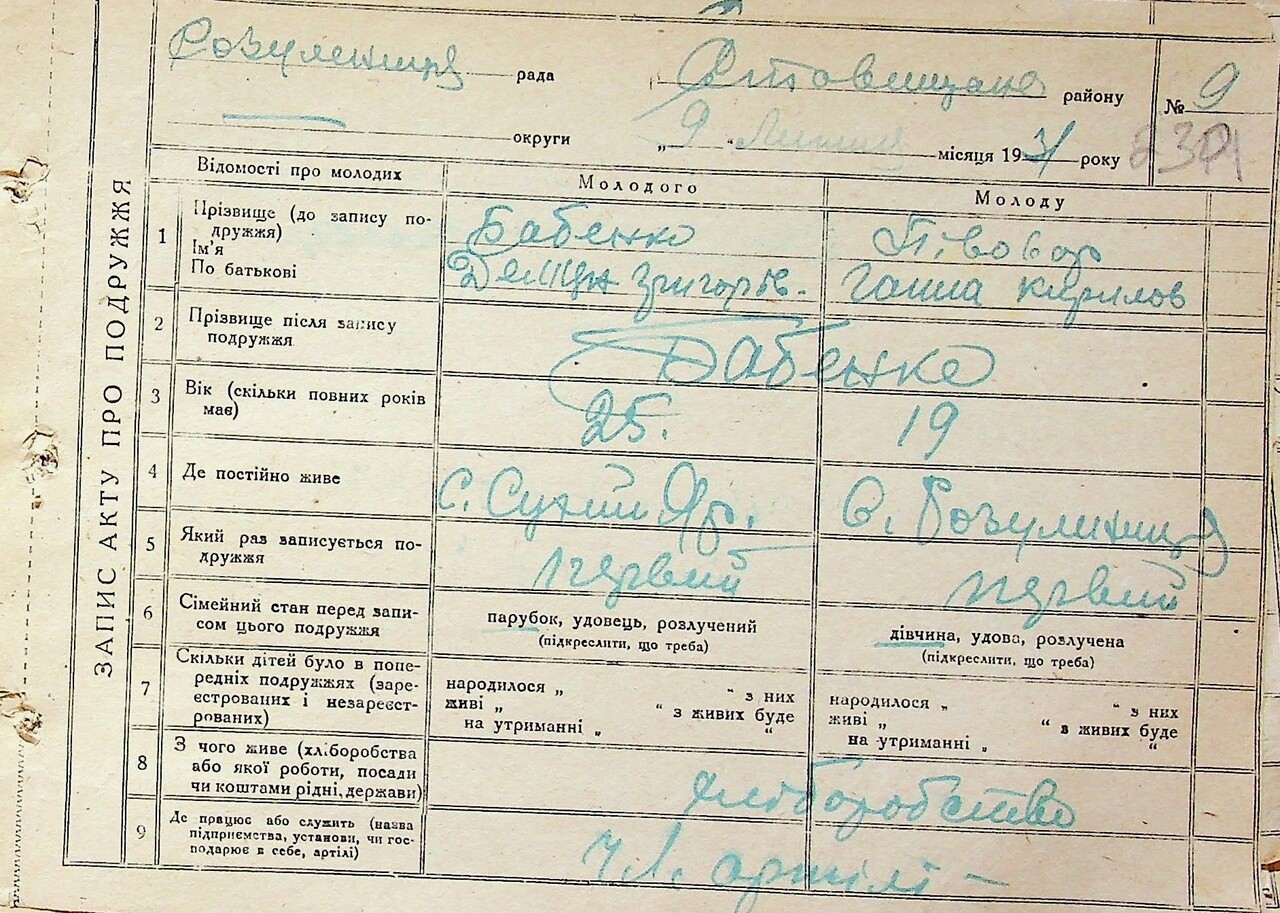 ЗАПИС АКТУ ПРО ПОДРУЖЖЯ
рада району № 9
округи „ 9 “ місяця 1931 року
Відомості про молодих Молодого Молоду
1 Прізвище (до запису подружжя) Бабенко Пивовар
Ім'я
По батькові Григорів. Ганна Кирилов
2 Прізвище після запису подружжя Бабенко
3 Вік (скільки повних років має) 25. 19
4 Де постійно живе с. Сухий Яр. с.
5 Який раз записується подружжя первий первий
6 Сімейний стан перед записом цього подружжя парубок, удовець, розлучений дівчина, удова, розлучена
(підкреслити, що треба) (підкреслити, що треба)
7 Скільки дітей було в попередніх подружжях (зареєстрованих і незареєстрованих)
народилося „ “ з них народилося „ “ з них
живі „ “ з живих буде живі „ “ з живих буде
на утриманні „ “ на утриманні „ “
8 З чого живе (хліборобства або якої роботи, посади чи коштами рідні, держави) хліборобство
9 Де працює або служить (назва підприємства, установи, чи господарює в себе, артілі) чл. артілі –